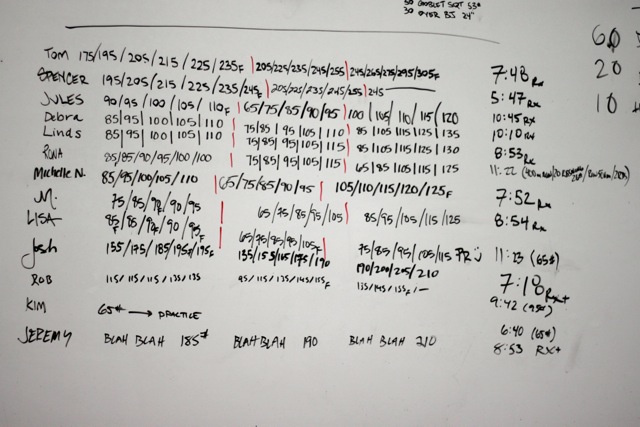 50 GOBLET SQT 53#
30 OVER BJ 24"
60
20
10
TOM 175/195/205/215/225/235F 205/225/235/245/255 245/265/275/295/305F 7:48 Rx
SPENCER 195/205/215/225/235/245F 205/225/235/245/255 245 5:47 Rx
JULES 90/95/100/105/110F 65/75/85/90/95 100/105/110/115/120 10:45 Rx
Debra 85|95|100|105|110 75|85|95|105|110 85|105|115|125|135 10:10 Rx
Linds 85|95|100|105|110 75|85|95|105|115 85|105|115|125|130 8:53 Rx
85/85/90/95/100/100 75|85|95|105|115 65|85|105|115|125 11:22
Michelle N. 85/95/100/105/110 65/75/85/90/95 105/110/115/120/125F 7:52 Rx
M. 75/85/90/95 8:54 Rx
LISA 85/95 65/75/85/95/105 85/95/105/115/125
Josh 155/175/185/195F/195F 65/75/85/95/105F 75/85/95/105/115 PR 11:23 (65#)
135/155/165/175/190 190/200/205/210 7:18 Rx+
ROB 115/115/115/135/135 95/115/135/145/155F 135/145/155F/— 9:42 (95#)
KIM 65# → PRACTICE 6:40 (65#)
JEREMY BLAH BLAH 185# BLAH BLAH 190 BLAH BLAH 210 8:53 RX+